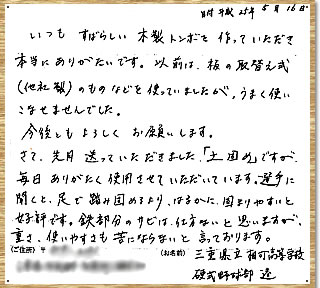 日付 平成 25年 5月 16日
いつも すばらしい 木製トンボを 作っていただき
本当に ありがたいです。以前は、板の取替え式
(他社製)のものなどを使っていましたが、うまく使い
こなせませんでした。
今後とも よろしく お願いします。
さて、先月 送っていただきました、「土固め」ですが
毎日 ありがたく 使用させていただいています。選手に
聞くと、足で踏み固めるより、はるかに、固まりやすいと
好評です。鉄部分のサビは、仕方ないと思いますが、
重さ、使いやすさも 苦にならないと 言っております。
(ご住所) 〒
(お名前) 三重県立 相可高等学校
硬式野球部